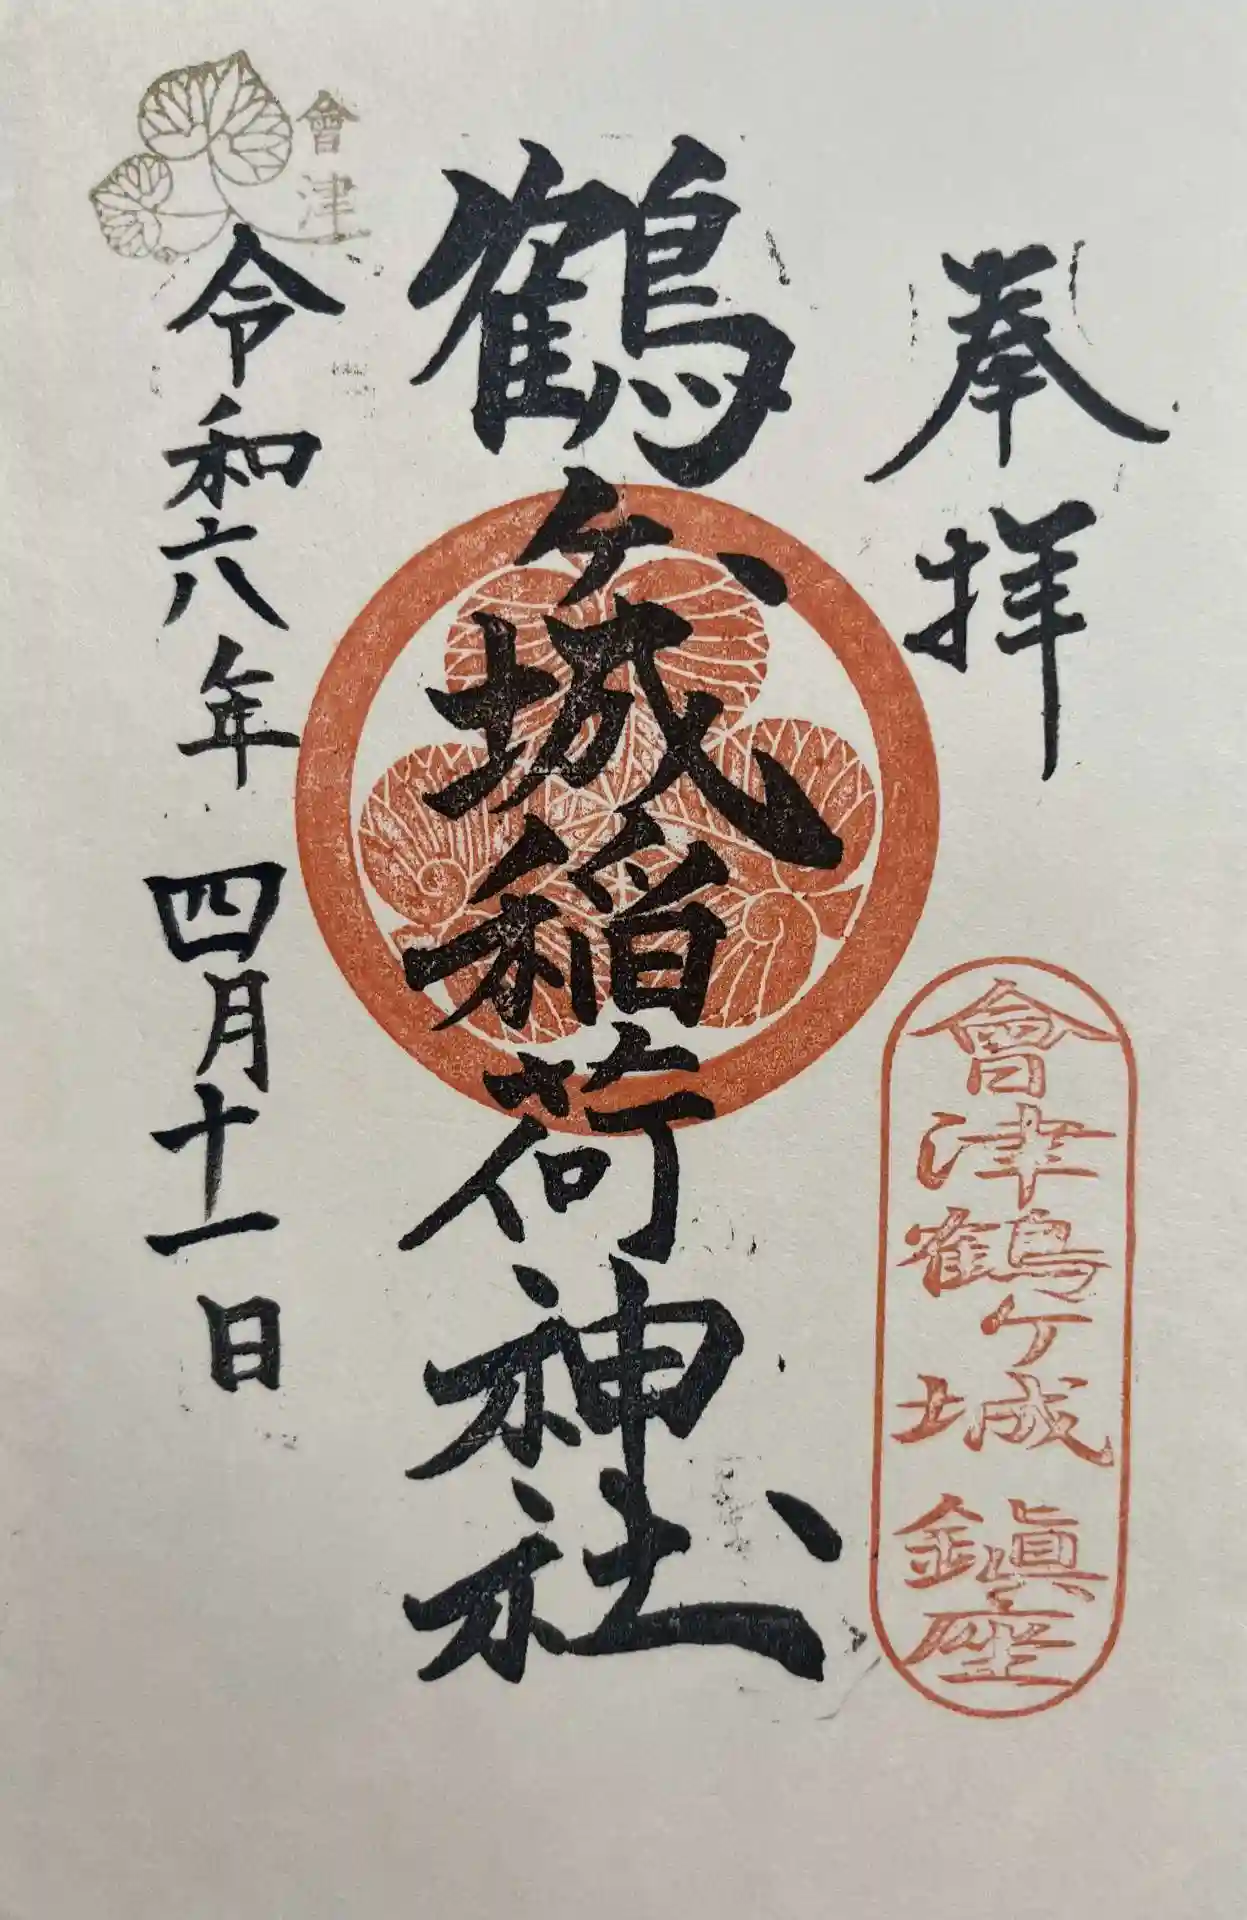 奉拝
會津鶴ケ城鎮座
鶴ヶ城稲荷神社
會津
令和六年四月十一日